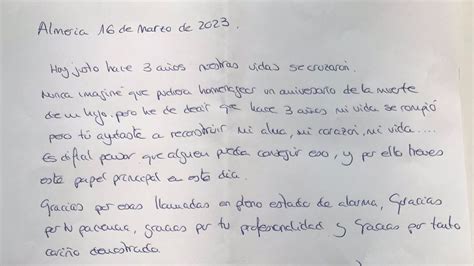 Almeria 16 de Marzo de 2023.
Hoy justo hace 3 años nuestras vidas se cruzaron.
Nunca imaginé que pudiera homenajear un aniversario de la muerte
de un hijo, pero he de decir que hace 3 años mi vida se rompió
pero tú ayudaste a reconstruir mi alma, mi corazón, mi vida....
Es difícil pensar que alguien pueda conseguir eso, y por ello tienes
este papel principal en este día.
Gracias por esas llamadas en pleno estado de alarma, Gracias
por tu paciencia, gracias por tu profesionalidad y Gracias por tanto
cariño demostrado.